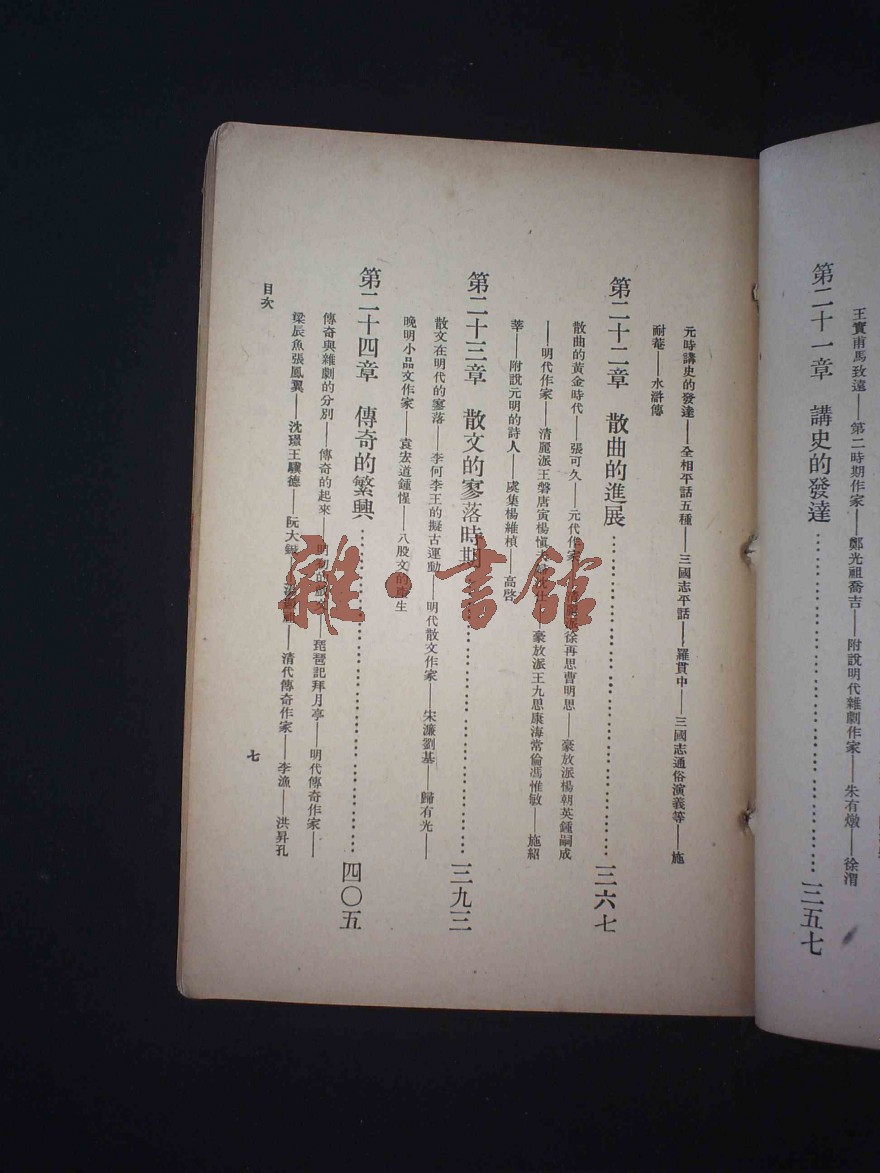 王實甫馬致遠——第二時期作家——鄭光祖喬吉——附說明代雜劇作家——朱有燉——徐渭
第二十一章　講史的發達……三五七
元時講史的發達——全相平話五種——三國志平話——羅貫中——三國志通俗演義等——施
耐菴——水滸傳
第二十二章　散曲的進展……三六七
散曲的黃金時代——張可久——元代作家——徐再思曹明思——豪放派楊朝英鍾嗣成
——明代作家——清麗派王磐唐寅楊慎——豪放派王九思康海常倫馮惟敏——施紹
莘——附說元明的詩人——虞集楊維楨——高啓
第二十三章　散文的寥落時期……三九三
散文在明代的寥落——李何李王的擬古運動——明代散文作家——宋濂劉基——歸有光——
晚明小品文作家——袁宏道鍾惺——八股文的產生
第二十四章　傳奇的繁興……四〇五
傳奇與雜劇的分別——傳奇的起來——明初的戲文——琵琶記拜月亭——明代傳奇作家——
梁辰魚張鳳翼——沈璟王驥德——阮大鋮——湯顯祖——清代傳奇作家——李漁——洪昇孔
目次
七
雜·書館